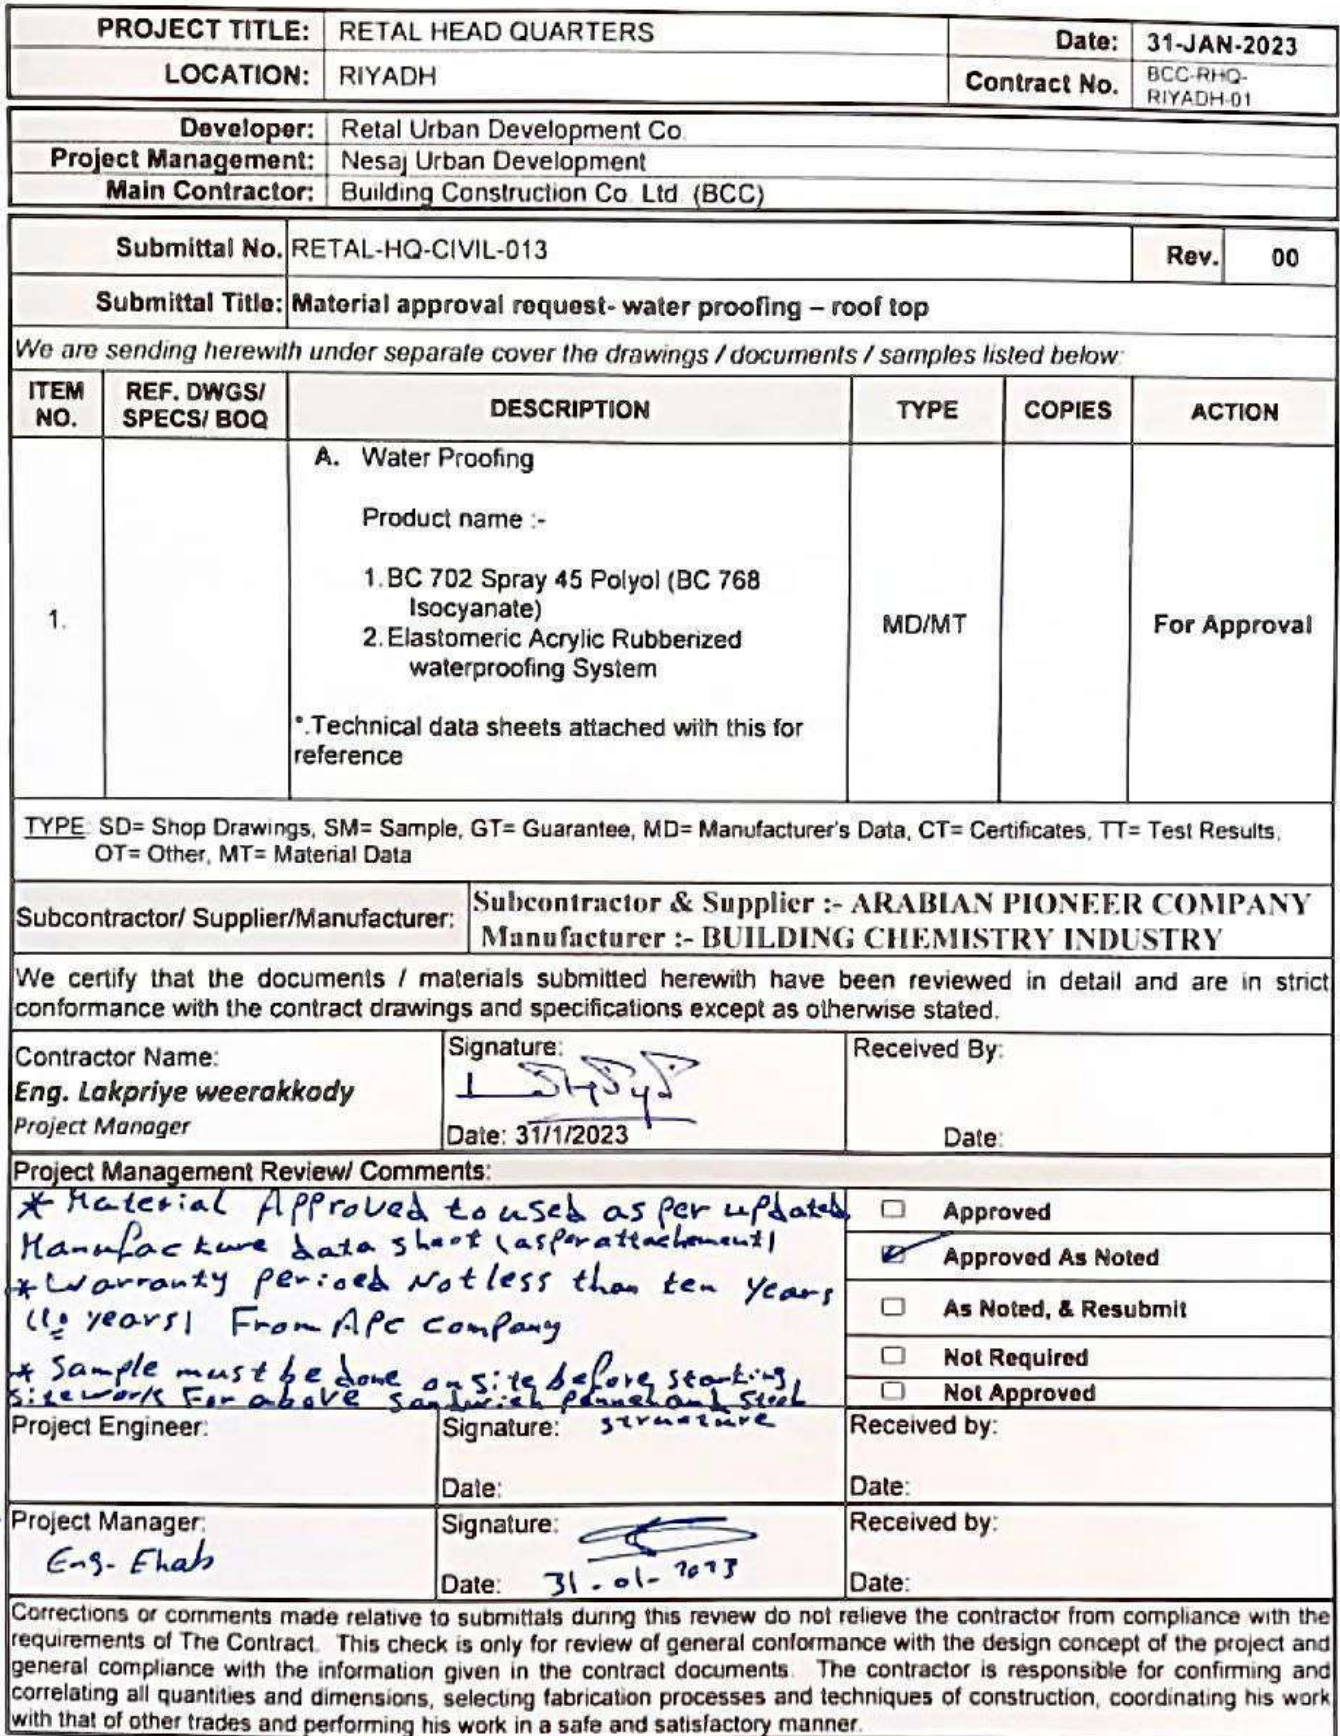 PROJECT TITLE: RETAL HEAD QUARTERS Date: 31-JAN-2023
LOCATION: RIYADH Contract No. BCC-RHQ-
RIYADH-01
Developer: Retal Urban Development Co
Project Management: Nesaj Urban Development
Main Contractor: Building Construction Co. Ltd (BCC)
Submittal No. RETAL-HQ-CIVIL-013 Rev. 00
Submittal Title: Material approval request- water proofing – roof top
We are sending herewith under separate cover the drawings / documents / samples listed below:
ITEM NO. REF. DWGS/ SPECS/ BOQ DESCRIPTION TYPE COPIES ACTION
A. Water Proofing
Product name :-
1. BC 702 Spray 45 Polyol (BC 768
Isocyanate)
1. MD/MT For Approval
2. Elastomeric Acrylic Rubberized
waterproofing System
*.Technical data sheets attached with this for
reference
TYPE: SD= Shop Drawings, SM= Sample, GT= Guarantee, MD= Manufacturer's Data, CT= Certificates, TT= Test Results,
OT= Other, MT= Material Data
Subcontractor/ Supplier/Manufacturer: Subcontractor & Supplier :- ARABIAN PIONEER COMPANY
Manufacturer :- BUILDING CHEMISTRY INDUSTRY
We certify that the documents / materials submitted herewith have been reviewed in detail and are in strict
conformance with the contract drawings and specifications except as otherwise stated.
Contractor Name: Signature: Received By:
Eng. Lakpriye weerakkody
Project Manager Date: 31/1/2023 Date:
Project Management Review/ Comments:
* Material Approved to used as per updated
Manufacture data sheet (as per attachement)
* Warranty perioed Not less than ten years
(10 years) From APC company
* Sample must be done on site before starking,
sitework For above sandwich pannel and steel
structure
Approved
Approved As Noted
As Noted, & Resubmit
Not Required
Not Approved
Project Engineer: Signature: Received by:
Date: Date:
Project Manager: Signature: Received by:
Eng. Ehab
Date: 31-01-2023 Date:
Corrections or comments made relative to submittals during this review do not relieve the contractor from compliance with the
requirements of The Contract. This check is only for review of general conformance with the design concept of the project and
general compliance with the information given in the contract documents. The contractor is responsible for confirming and
correlating all quantities and dimensions, selecting fabrication processes and techniques of construction, coordinating his work
with that of other trades and performing his work in a safe and satisfactory manner.